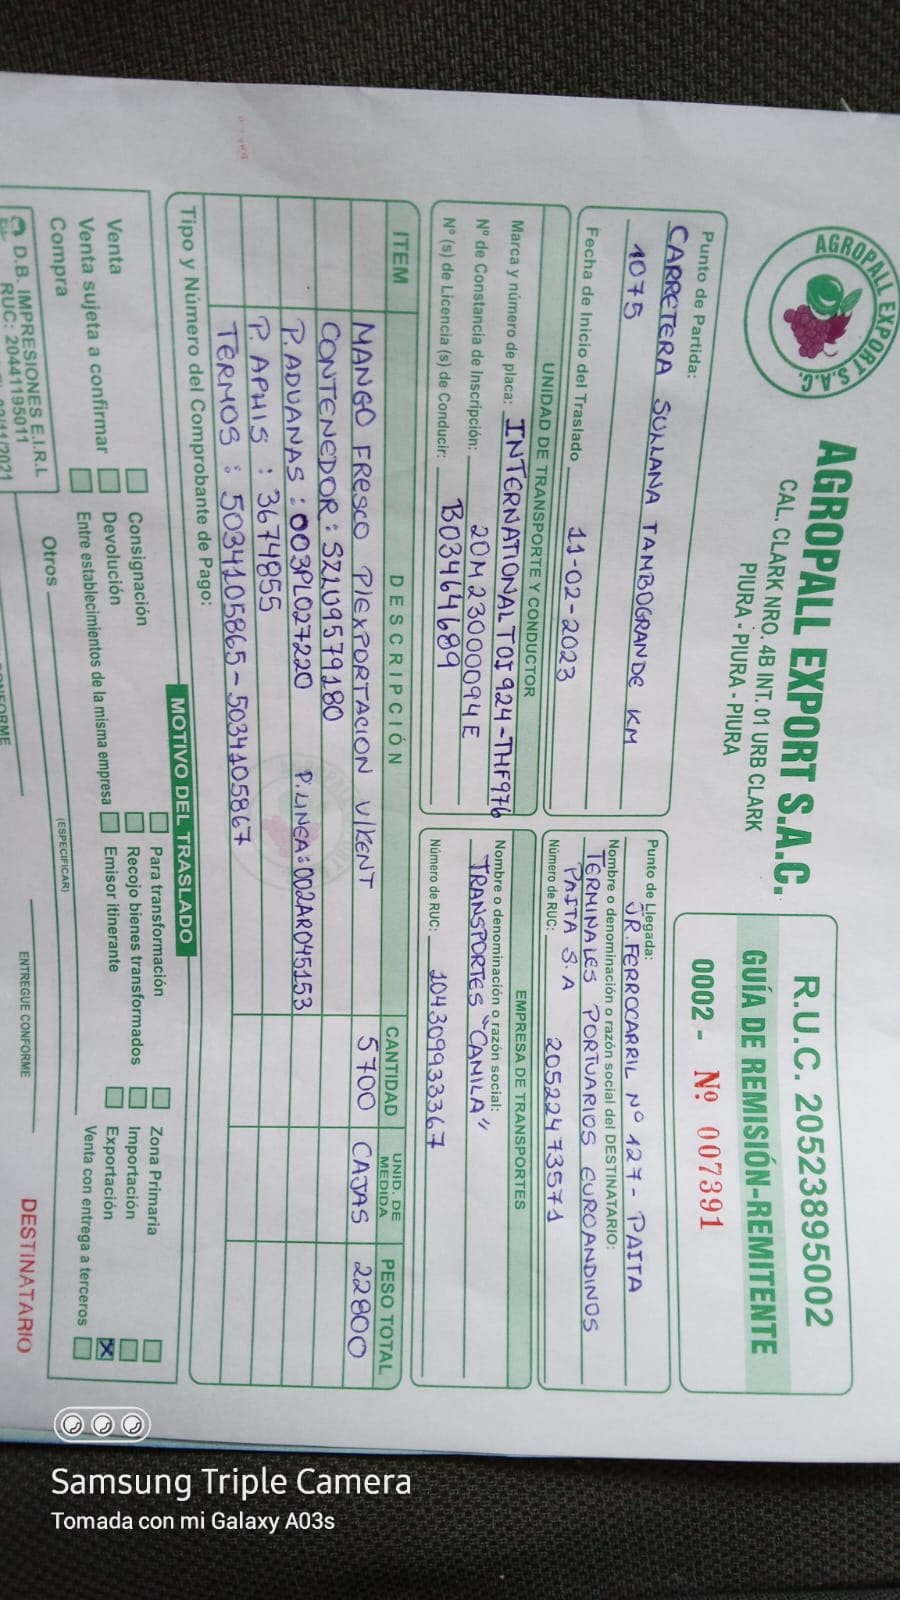 AGROPALL EXPORT S.A.C.
AGROPALL EXPORT S.A.C.
CAL. CLARK NRO. 4B INT. 01 URB CLARK
PIURA - PIURA - PIURA
R.U.C. 20523895002
GUÍA DE REMISIÓN-REMITENTE
0002 - Nº 007391
Punto de Partida:
CARRETERA SULLANA TAMBOGRANDE KM
1075
Fecha de Inicio del Traslado 11-02-2023
Punto de Llegada:
JR. FERROCARRIL Nº 127- PAITA
Nombre o denominación o razón social del DESTINATARIO:
TERMINALES PORTUARIOS EUROANDINOS
PAITA S.A
Número de RUC: 20522473571
UNIDAD DE TRANSPORTE Y CONDUCTOR
Marca y número de placa: INTERNATIONAL TOI924-THF976
Nº de Constancia de Inscripción: 20M23000094E
Nº (s) de Licencia (s) de Conducir: B03464689
EMPRESA DE TRANSPORTES
Nombre o denominación o razón social:
TRANSPORTES "CAMILA"
Número de RUC: 10430993367
ITEM DESCRIPCIÓN CANTIDAD UNID. DE MEDIDA PESO TOTAL
MANGO FRESCO P/EXPORTACION V/KENT 5700 CAJAS 22800
CONTENEDOR: SZLU9579180
P. ADUANAS: 003PL027220 P. LINEA: 002AR045153
P. APHIS: 3674855
TERMOS: 5034105865-5034105867
Tipo y Número del Comprobante de Pago:
MOTIVO DEL TRASLADO
Venta Consignación Para transformación Zona Primaria
Venta sujeta a confirmar Devolución Recojo bienes transformados Importación
Compra Entre establecimientos de la misma empresa Emisor itinerante Exportación X
Venta con entrega a terceros
Otros
(ESPECIFICAR)
D.B. IMPRESIONES E.I.R.L
RUC: 20441195011
ENTREGUE CONFORME
DESTINATARIO
Samsung Triple Camera
Tomada con mi Galaxy A03s